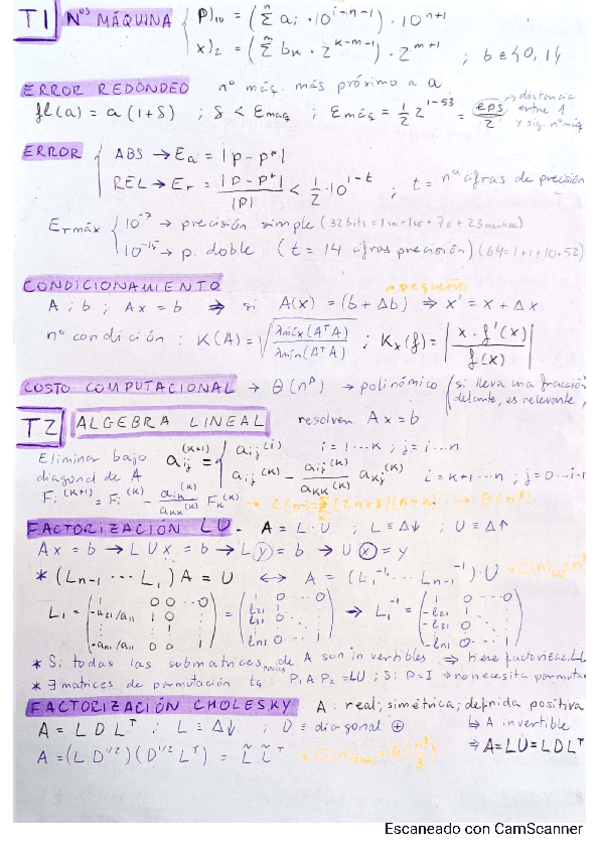 T1 Nos MÁQUINA { p)10 = (Σ ai · 10^(i-n-1)) · 10^(n+1)
x)2 = (Σ bk · 2^(k-m-1)) · 2^(m+1) ; b ∈ {0,1}
ERROR REDONDEO nº máq. más próximo a a
fl(a) = a(1+δ) ; δ < Emaq ; Emáq = 1/2 2^(1-53) = eps/2 → distancia entre 1 y sig. nº máq
ERROR { ABS → Ea = |p - p*|
REL → Er = |p - p*| / |p| < 1/2 · 10^(1-t) ; t = nº cifras de precisión
Ermáx { 10^-7 → precisión simple (32bits =
10^-15 → p. doble (t = 14 cifras precisión) (64=1+1+10+52)
CONDICIONAMIENTO → pequeño
A ; b ; Ax = b ⇒ si A(x) = (b + Δb) ⇒ x' = x + Δx
nº condición : K(A) = √(λmáx(AᵀA) / λmin(AᵀA)) ; Kx(f) = |x · f'(x) / f(x)|
COSTO COMPUTACIONAL → θ(n^p) → polinómico (si lleva una fracción delante, es relevante
T2 ALGEBRA LINEAL resolver Ax = b
Eliminar bajo diagonal de A aij^(k+1) = { aij^(i) i = 1...k ; j = i...n
aij^(k) - aij^(k)/akk^(k) akj^(k) i = k+1...n ; j = 0...i-1
Fi^(k+1) = Fi^(k) - aik^(k)/akk^(k) Fk^(k) → C(n) = Σ(2n+3)(n-k) → θ(n³)
FACTORIZACIÓN LU. A = L·U ; L ≡ Δ↓ ; U ≡ Δ↑
Ax = b → LUx = b → Ly = b → Ux = y
* (Ln-1 ··· L1)A = U ↔ A = (L1^-1 ··· Ln-1^-1)·U
L1 = (1 0 0 ··· 0 / -a21/a11 1 0 / -an1/a11 0 1) = (1 0 ··· 0 / ℓ21 1 0 / ℓ31 0 / ℓn1 0 ··· 1) → L1^-1 = (1 0 ··· 0 / -ℓ21 1 / -ℓ31 0 / -ℓn1 0 ··· 1)
* Si todas las submatrices de A son invertibles ⇒ tiene factorizac. LU
* ∃ matrices de permutación tq: P1 A P2 = LU ; Si P=I ⇒ no necesita permutar
FACTORIZACIÓN CHOLESKY A : real; simétrica; definida positiva
A = L D Lᵀ ; L ≡ Δ↓ ; D ≡ diagonal ⊕ ↳ A invertible
⇒ A = LU = LDLᵀ
A = (L D^1/2)(D^1/2 Lᵀ) = L̃ L̃ᵀ → = θ(n³/3)
Escaneado con CamScanner